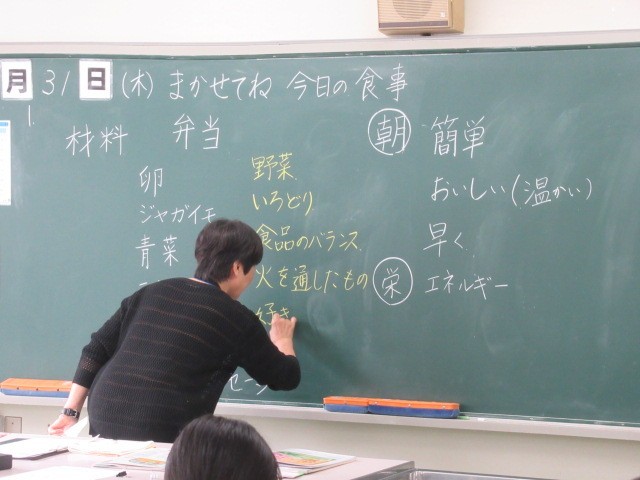 月 31 日 (木) まかせてね 今日の食事
材料
卵
ジャガイモ
青菜
弁当
野菜
いろどり
食品のバランス
火を通したもの
好き
朝 簡単
おいしい(温かい)
早く
栄 エネルギー